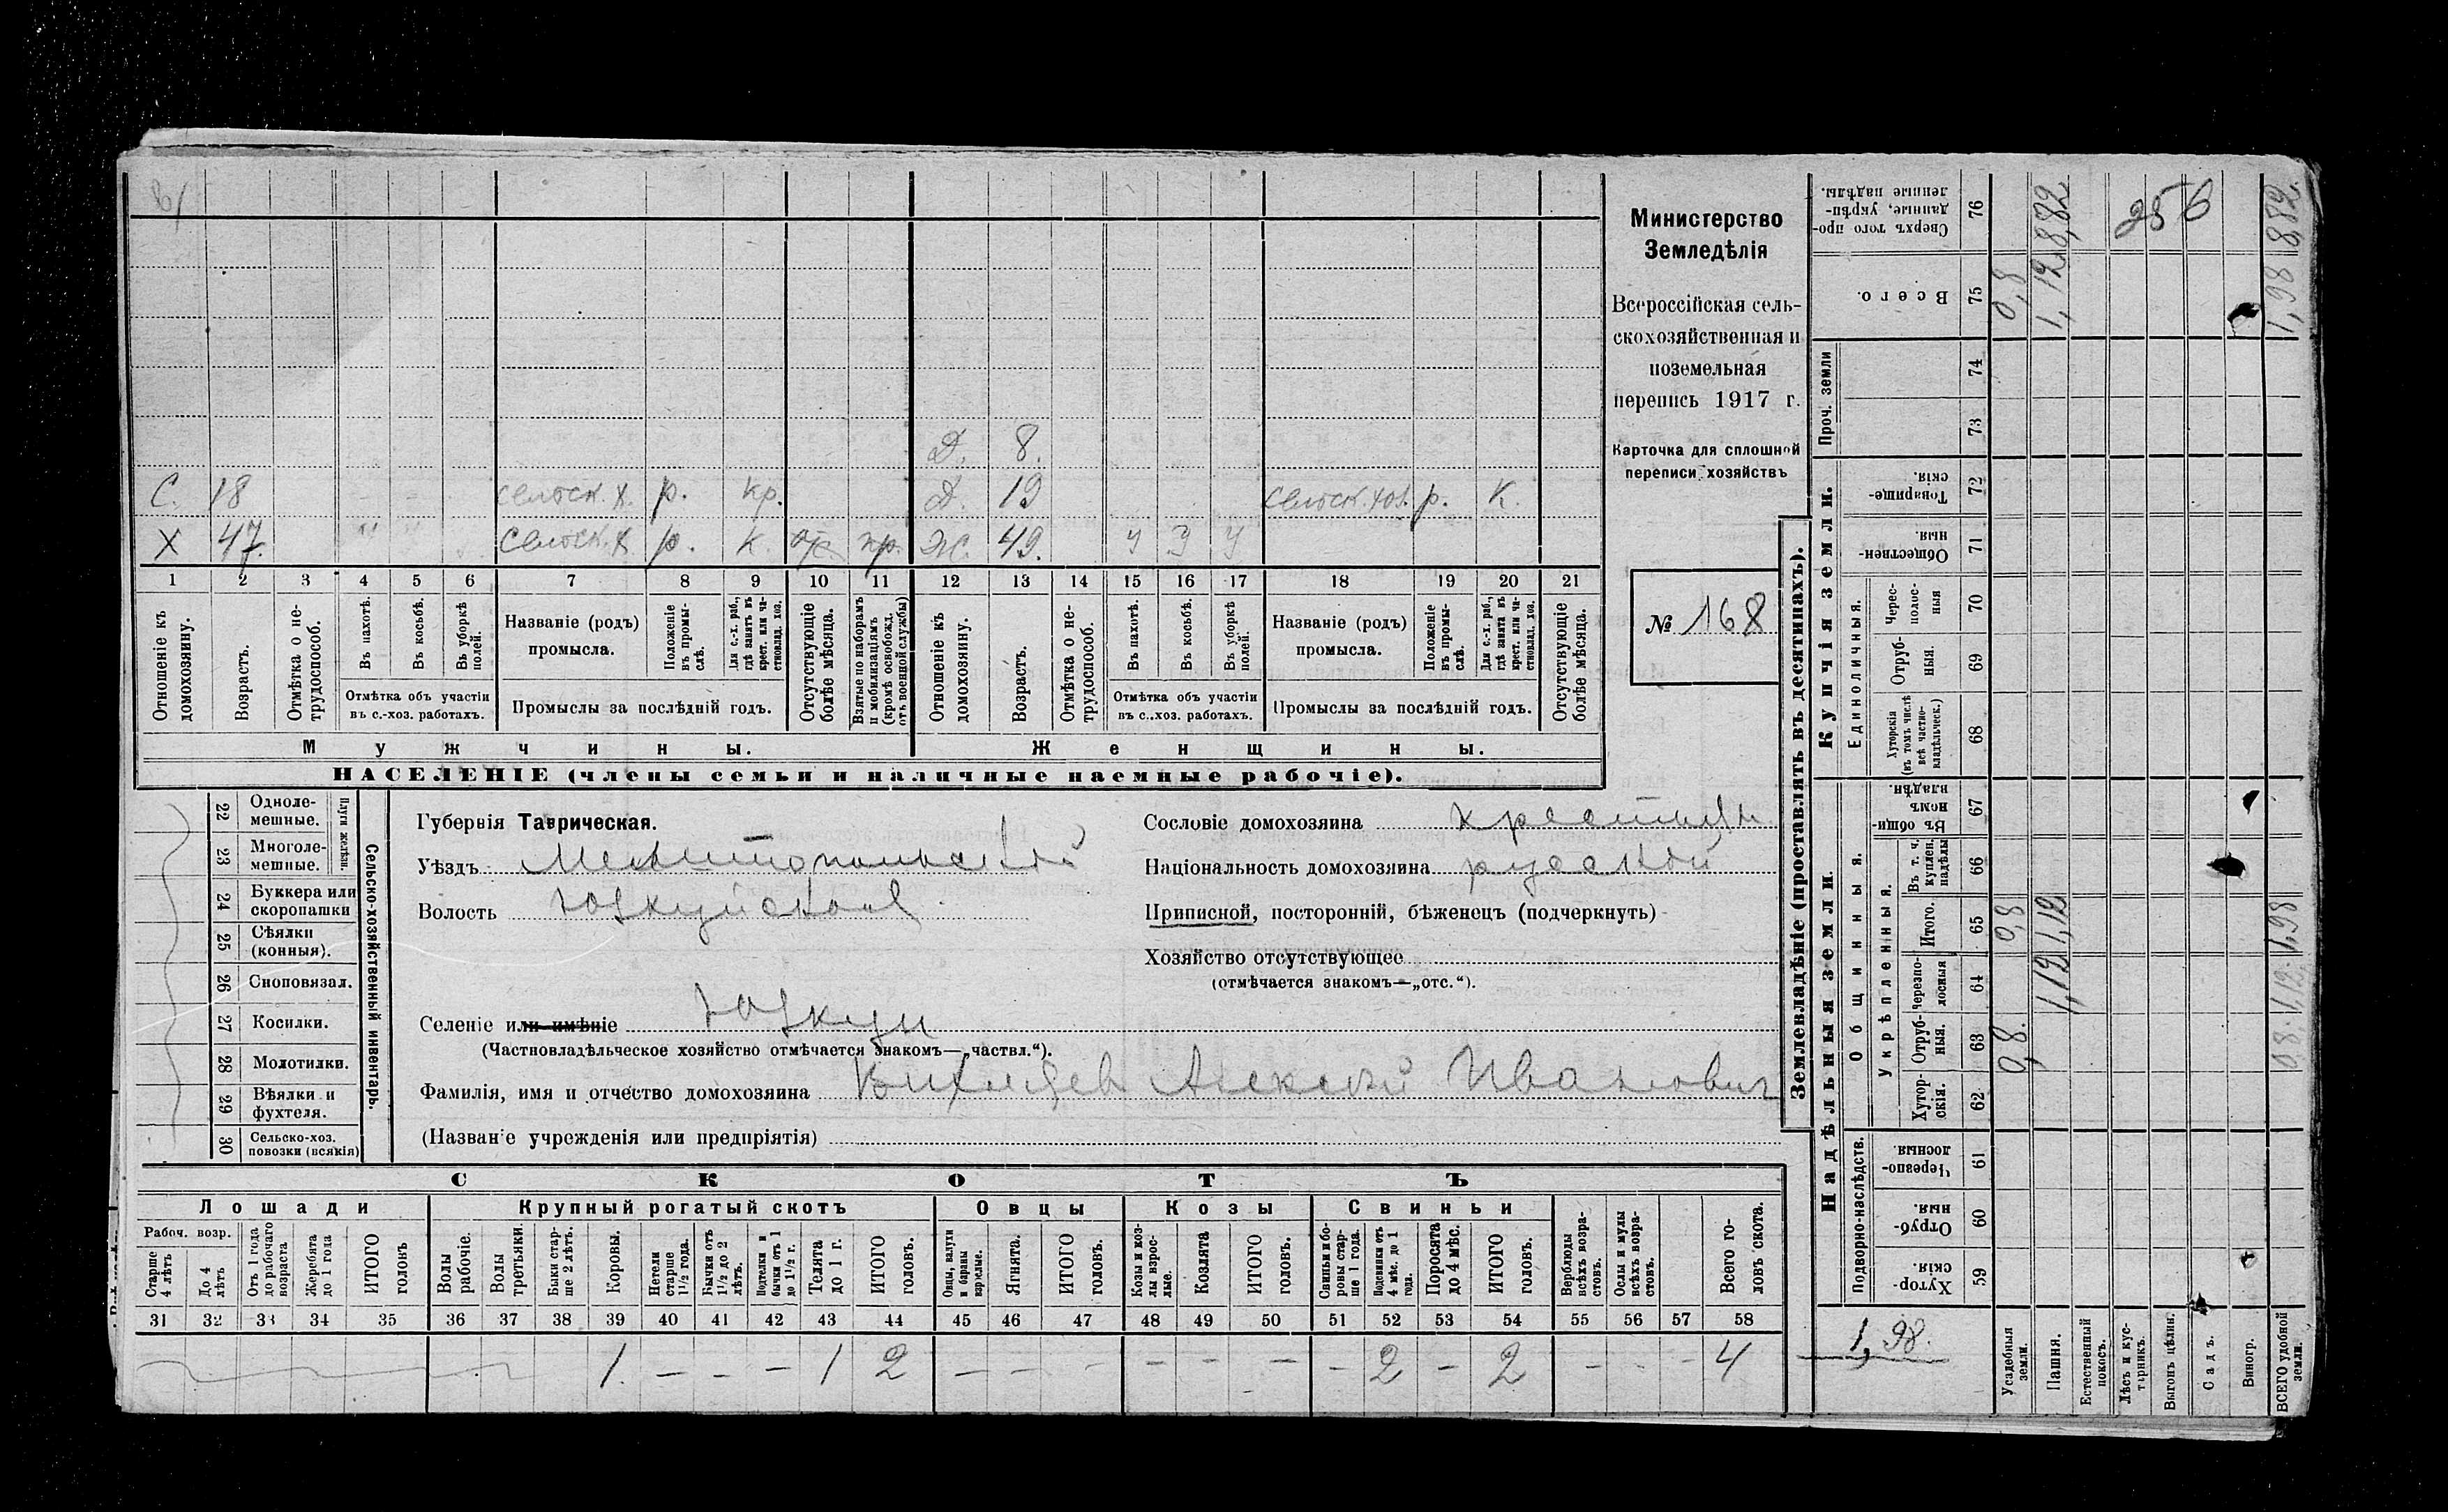 Министерство
Земледѣлія
Всероссійская сель-
скохозяйственная и
поземельная
перепись 1917 г.
Карточка для сплошной
переписи хозяйствъ
№ 168
Д. 8.
С. 18 сельск. х. р. кр. Д. 19 сельск. хоз. р. к.
Х 47. сельск. х. р. к. Ж. 49. У У У
1 2 3 4 5 6 7 8 9 10 11 12 13 14 15 16 17 18 19 20 21
Отношеніе къ домохозяину.
Возрастъ.
Отмѣтка о не-трудоспособ.
Въ пахотѣ.
Въ косьбѣ.
Въ уборкѣ полей.
Отмѣтка объ участіи
въ с.-хоз. работахъ.
Названіе (родъ)
промысла.
Положеніе въ промы-слѣ.
Для с.-х. раб., гдѣ занятъ въ крест. или ча-стновлад. хоз.
Промыслы за послѣдній годъ.
Отсутствующіе болѣе мѣсяца.
Взятые по наборамъ и мобилизаціямъ (кромѣ освобожд. отъ военной службы)
Отношеніе къ домохозяину.
Возрастъ.
Отмѣтка о не-трудоспособ.
Въ пахотѣ.
Въ косьбѣ.
Въ уборкѣ полей.
Отмѣтка объ участіи
въ с.-хоз. работахъ.
Названіе (родъ)
промысла.
Положеніе въ промы-слѣ.
Для с.-х. раб., гдѣ занята въ крест. или ча-стновлад. хоз.
Промыслы за послѣдній годъ.
Отсутствующіе болѣе мѣсяца.
Мужчины. Женщины.
НАСЕЛЕНІЕ (члены семьи и наличные наемные рабочіе).
22 Одноле-мешные.
23 Многоле-мешные.
Плуги желѣзн.
24 Буккера или скоропашки
25 Сѣялки (конныя).
26 Сноповязал.
27 Косилки.
28 Молотилки.
29 Вѣялки и фухтеля.
30 Сельско-хоз. повозки (всякія)
Сельско-хозяйственный инвентарь.
Губернія Таврическая.
Уѣздъ Мелитопольский
Волость Юзкуйская
Селеніе или имѣніе Юзкуи
(Частновладѣльческое хозяйство отмѣчается знакомъ—„частвл.“).
Фамилія, имя и отчество домохозяина Алексѣй Иванович
(Названіе учрежденія или предпріятія)
Сословіе домохозяина крестьян.
Національность домохозяина русский
Приписной, посторонній, бѣженецъ (подчеркнуть)
Хозяйство отсутствующее
(отмѣчается знакомъ—„отс.“).
СКОТЪ
Лошади Крупный рогатый скотъ Овцы Козы Свиньи
Рабоч. возр.
Старше 4 лѣтъ
До 4 лѣтъ
Отъ 1 года до рабочаго возраста
Жеребята до 1 года
ИТОГО головъ
Волы рабочіе.
Волы третьяки.
Быки стар-ше 2 лѣтъ.
Коровы.
Нетели старше 1 1/2 года.
Бычки отъ 1 1/2 до 2 лѣтъ.
Подтелки и бычки отъ 1 до 1 1/2 г.
Телята до 1 г.
ИТОГО головъ.
Овцы, валухи и бараны взрослые.
Ягнята.
ИТОГО головъ.
Козы и коз-лы взрос-лые.
Козлята
ИТОГО головъ.
Свиньи и бо-ровы стар-ше 1 года.
Подсвинки отъ 4 мѣс. до 1 года.
Поросята до 4 мѣс.
ИТОГО головъ.
Верблюды всѣхъ возра-стовъ.
Ослы и мулы всѣхъ возра-стовъ.
Всего го-ловъ скота.
31 32 33 34 35 36 37 38 39 40 41 42 43 44 45 46 47 48 49 50 51 52 53 54 55 56 57 58
1. — — — 1 2 — — — — — — — 2 — 2 — — — 4
Землевладѣніе (проставлять въ десятинахъ).
Купчія земли.
Надѣльныя земли.
Сверхъ того про-данные, укрѣп-ленные надѣлы. 76
Всего. 75
Проч. земли 74 73
Товарище-скія 72
Обществен-ныя 71
Единоличныя.
Черес-полос-ныя 70
Отруб-ныя. 69
Хуторскія (въ томъ числѣ всѣ частно-владѣльческ.) 68
Общинныя.
Въ общин-номъ владѣн. 67
Укрѣпленныя.
Въ т. ч. куплен. надѣлы 66
Итого. 65
Черезпо-лосныя 64
Отруб-ныя. 63
Хутор-скія. 62
Подворно-наслѣдств.
Черезпо-лосныя. 61
Отруб-ныя. 60
Хутор-скія. 59
Усадебныя земли.
Пашня.
Естественный покосъ.
Лѣсъ и кус-тарникъ.
Выгонъ цѣлин.
Садъ.
Виногр.
ВСЕГО удобной земли.
256
8,82 8,82.
0,8 1,12 1,98
0,8 1,12 1,98
1,12 1,12.
0,8. 0,8.
1,98.